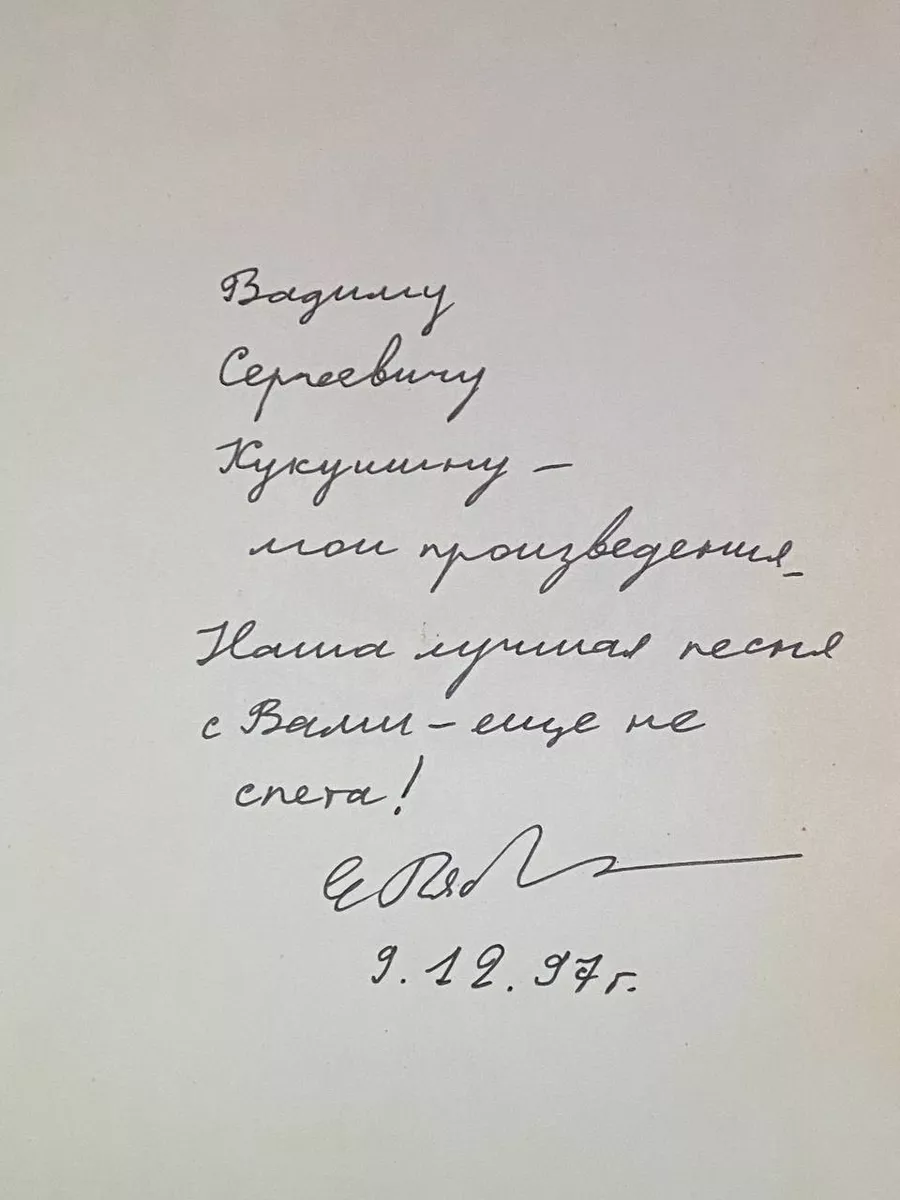 Вадиму
Сергеевичу
Кукушину –
мои произведения.
Наша лучшая песня
с Вами – еще не
спета!
9.12.97г.